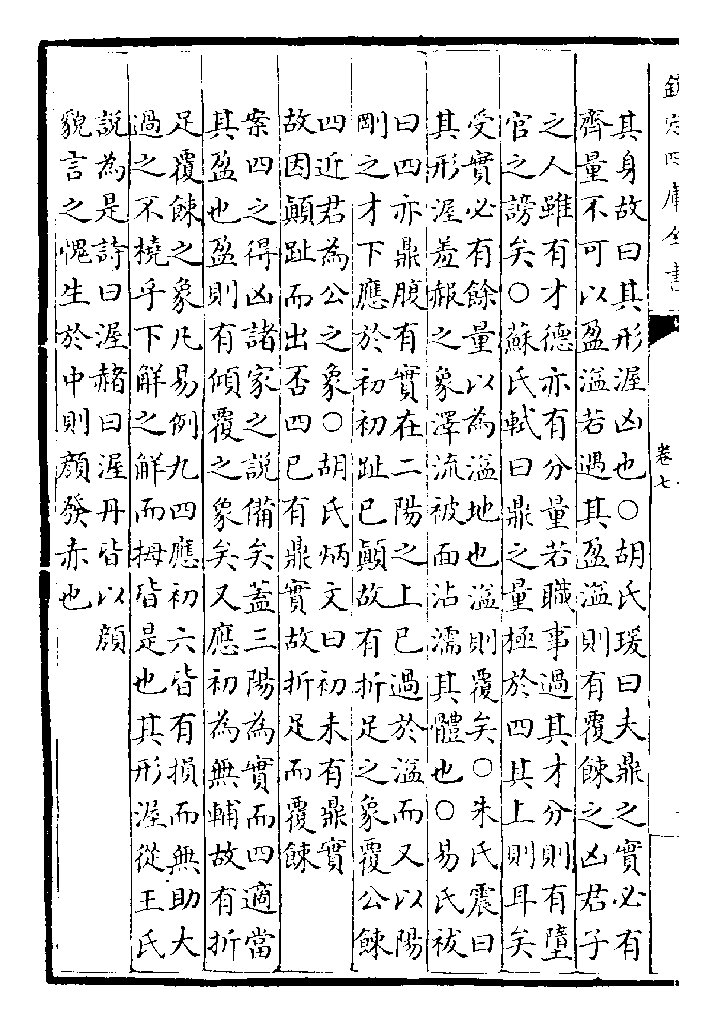 欽定四庫全書
卷七
其身故曰其形渥凶也○胡氏瑗曰夫鼎之實必有
齊量不可以盈溢若遇其盈溢則有覆餗之凶君子
之人雖有才德亦有分量若職事過其才分則有墮
官之謗矣○蘇氏軾曰鼎之量極於四其上則耳矣
受實必有餘量以為溢地也溢則覆矣○朱氏震曰
其形渥羞赧之象澤流被面沾濡其體也○易氏祓
曰四亦鼎腹有實在二陽之上已過於溢而又以陽
剛之才下應於初初趾已顛故有折足之象覆公餗
四近君為公之象○胡氏炳文曰初未有鼎實
故因顛趾而出否四已有鼎實故折足而覆餗
案四之得凶諸家之説備矣蓋三陽為實而四適當
其盈也盈則有傾覆之象矣又應初為無輔故有折
足覆餗之象凡易例九四應初六皆有損而無助大
過之不橈乎下解之解而拇皆是也其形渥從王氏
説為是詩曰渥赭曰渥丹皆以顔
貌言之愧生於中則顔發赤也